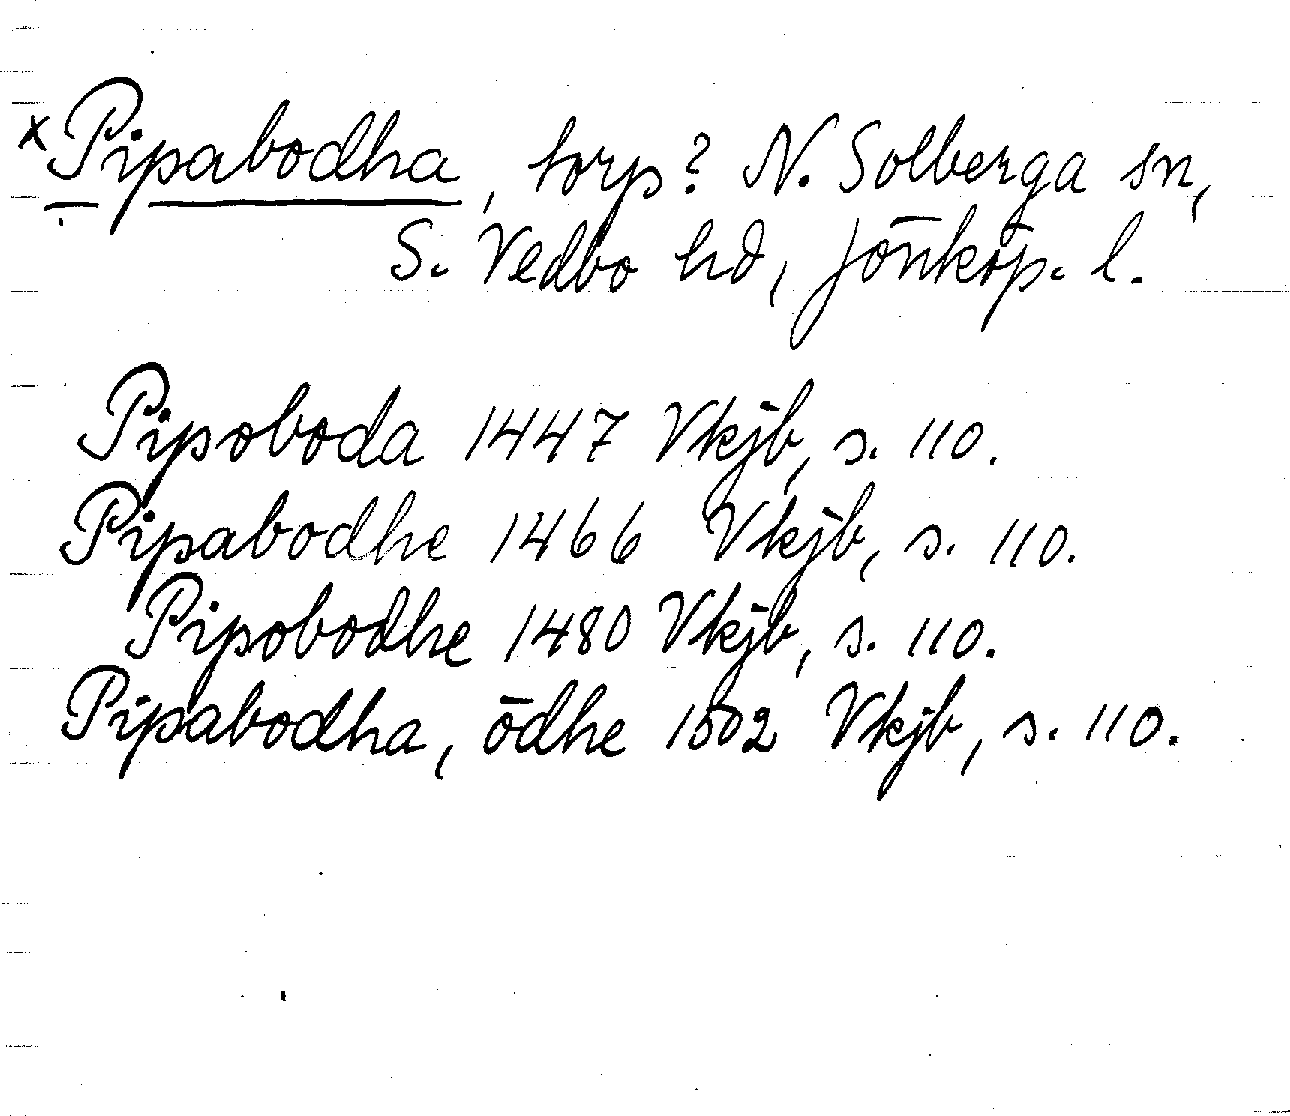 x Pipabodha, torp? N. Solberga sn,
S. Vedbo hd, Jönköp. l.
Pipoboda 1447 Vkjb, s. 110.
Pipabodhe 1466 Vkjb, s. 110.
Pipobodhe 1480 Vkjb, s. 110.
Pipabodha, ödhe 1502 Vkjb, s. 110.